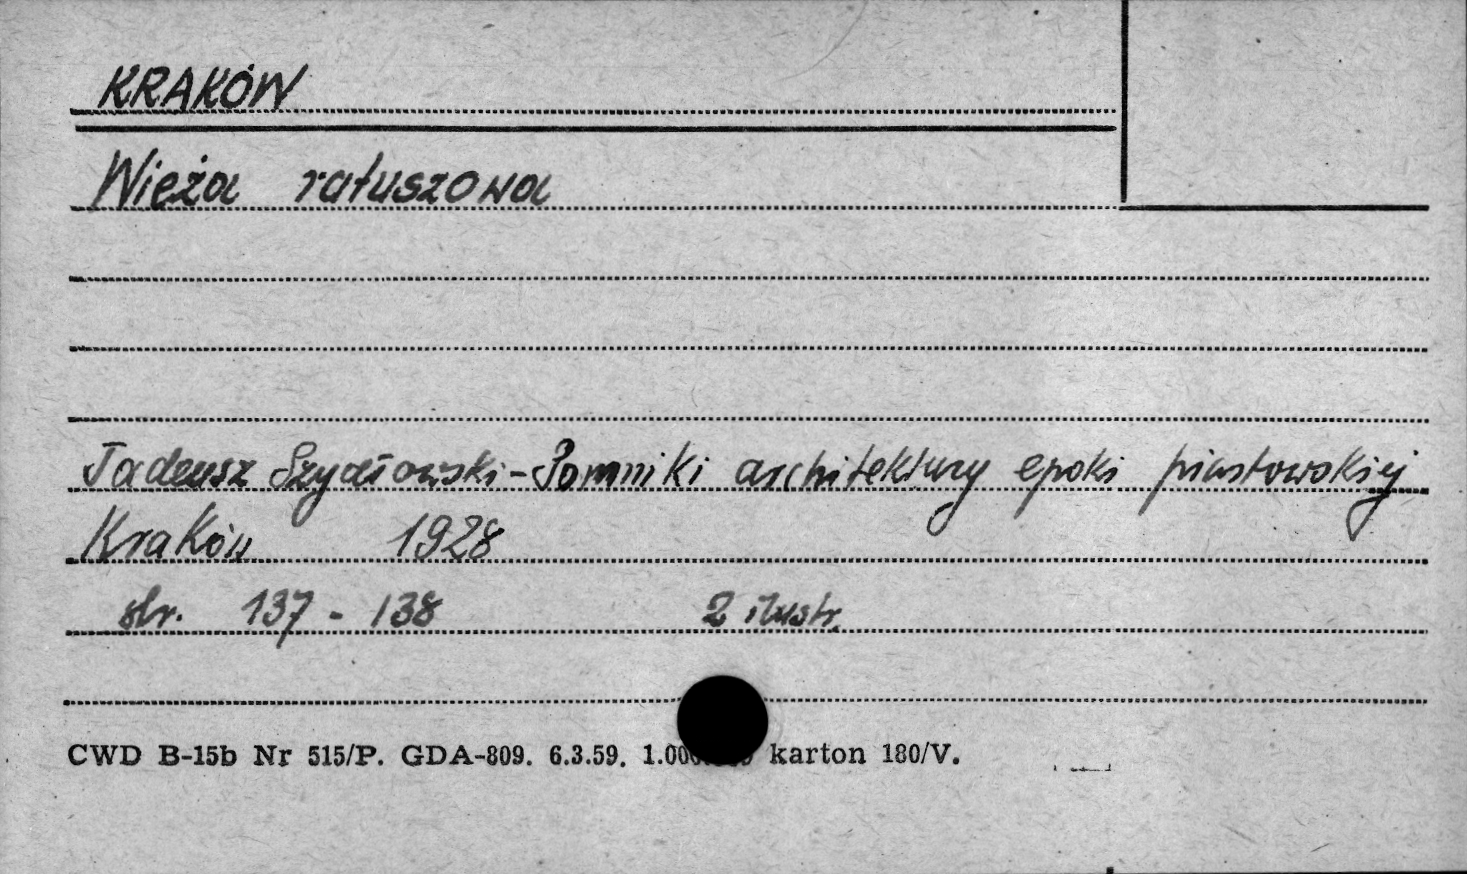 KRAKÓW
Wieża ratuszowa
Tadeusz Szydłowski - Pomniki architektury epoki piastowskiej
Kraków 1928
str. 137 - 138 2 ilustr.
CWD B-15b Nr 515/P. GDA-809. 6.3.59. karton 180/V.